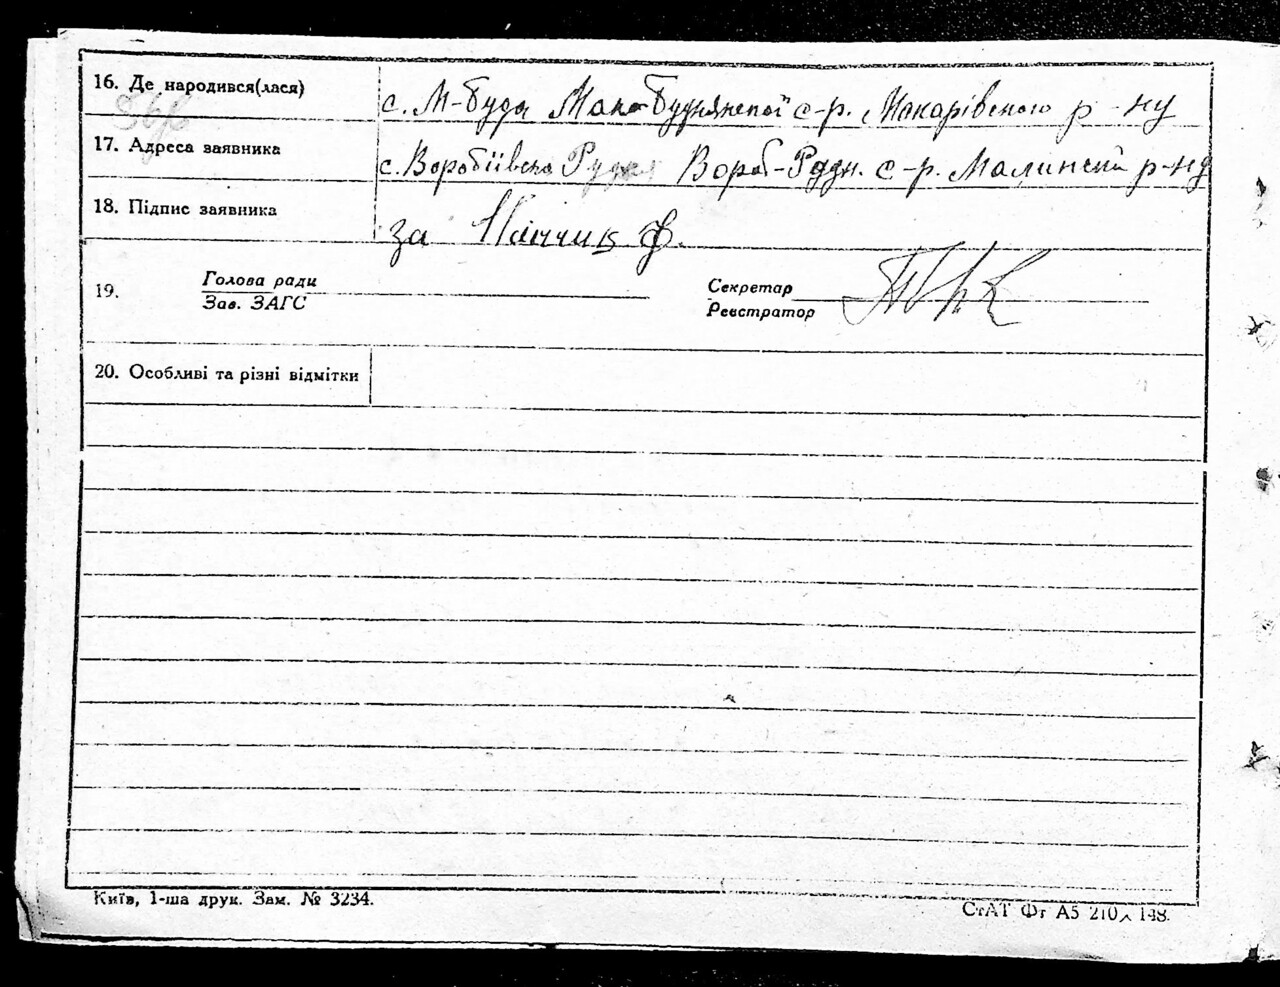 16. Де народився(лася) с. М-Буда Мако-Буднянской с-р. Макарівського р-ну
17. Адреса заявника с. Воробіївська Рудка Вороб-Рудн. с-р. Малинский р-ну
18. Підпис заявника за Панчик Ф.
19. Голова ради Секретар
Зав. ЗАГС Реєстратор
20. Особливі та різні відмітки
Київ, 1-ша друк. Зам. № 3234.
СтАТ Фт А5 210х148.